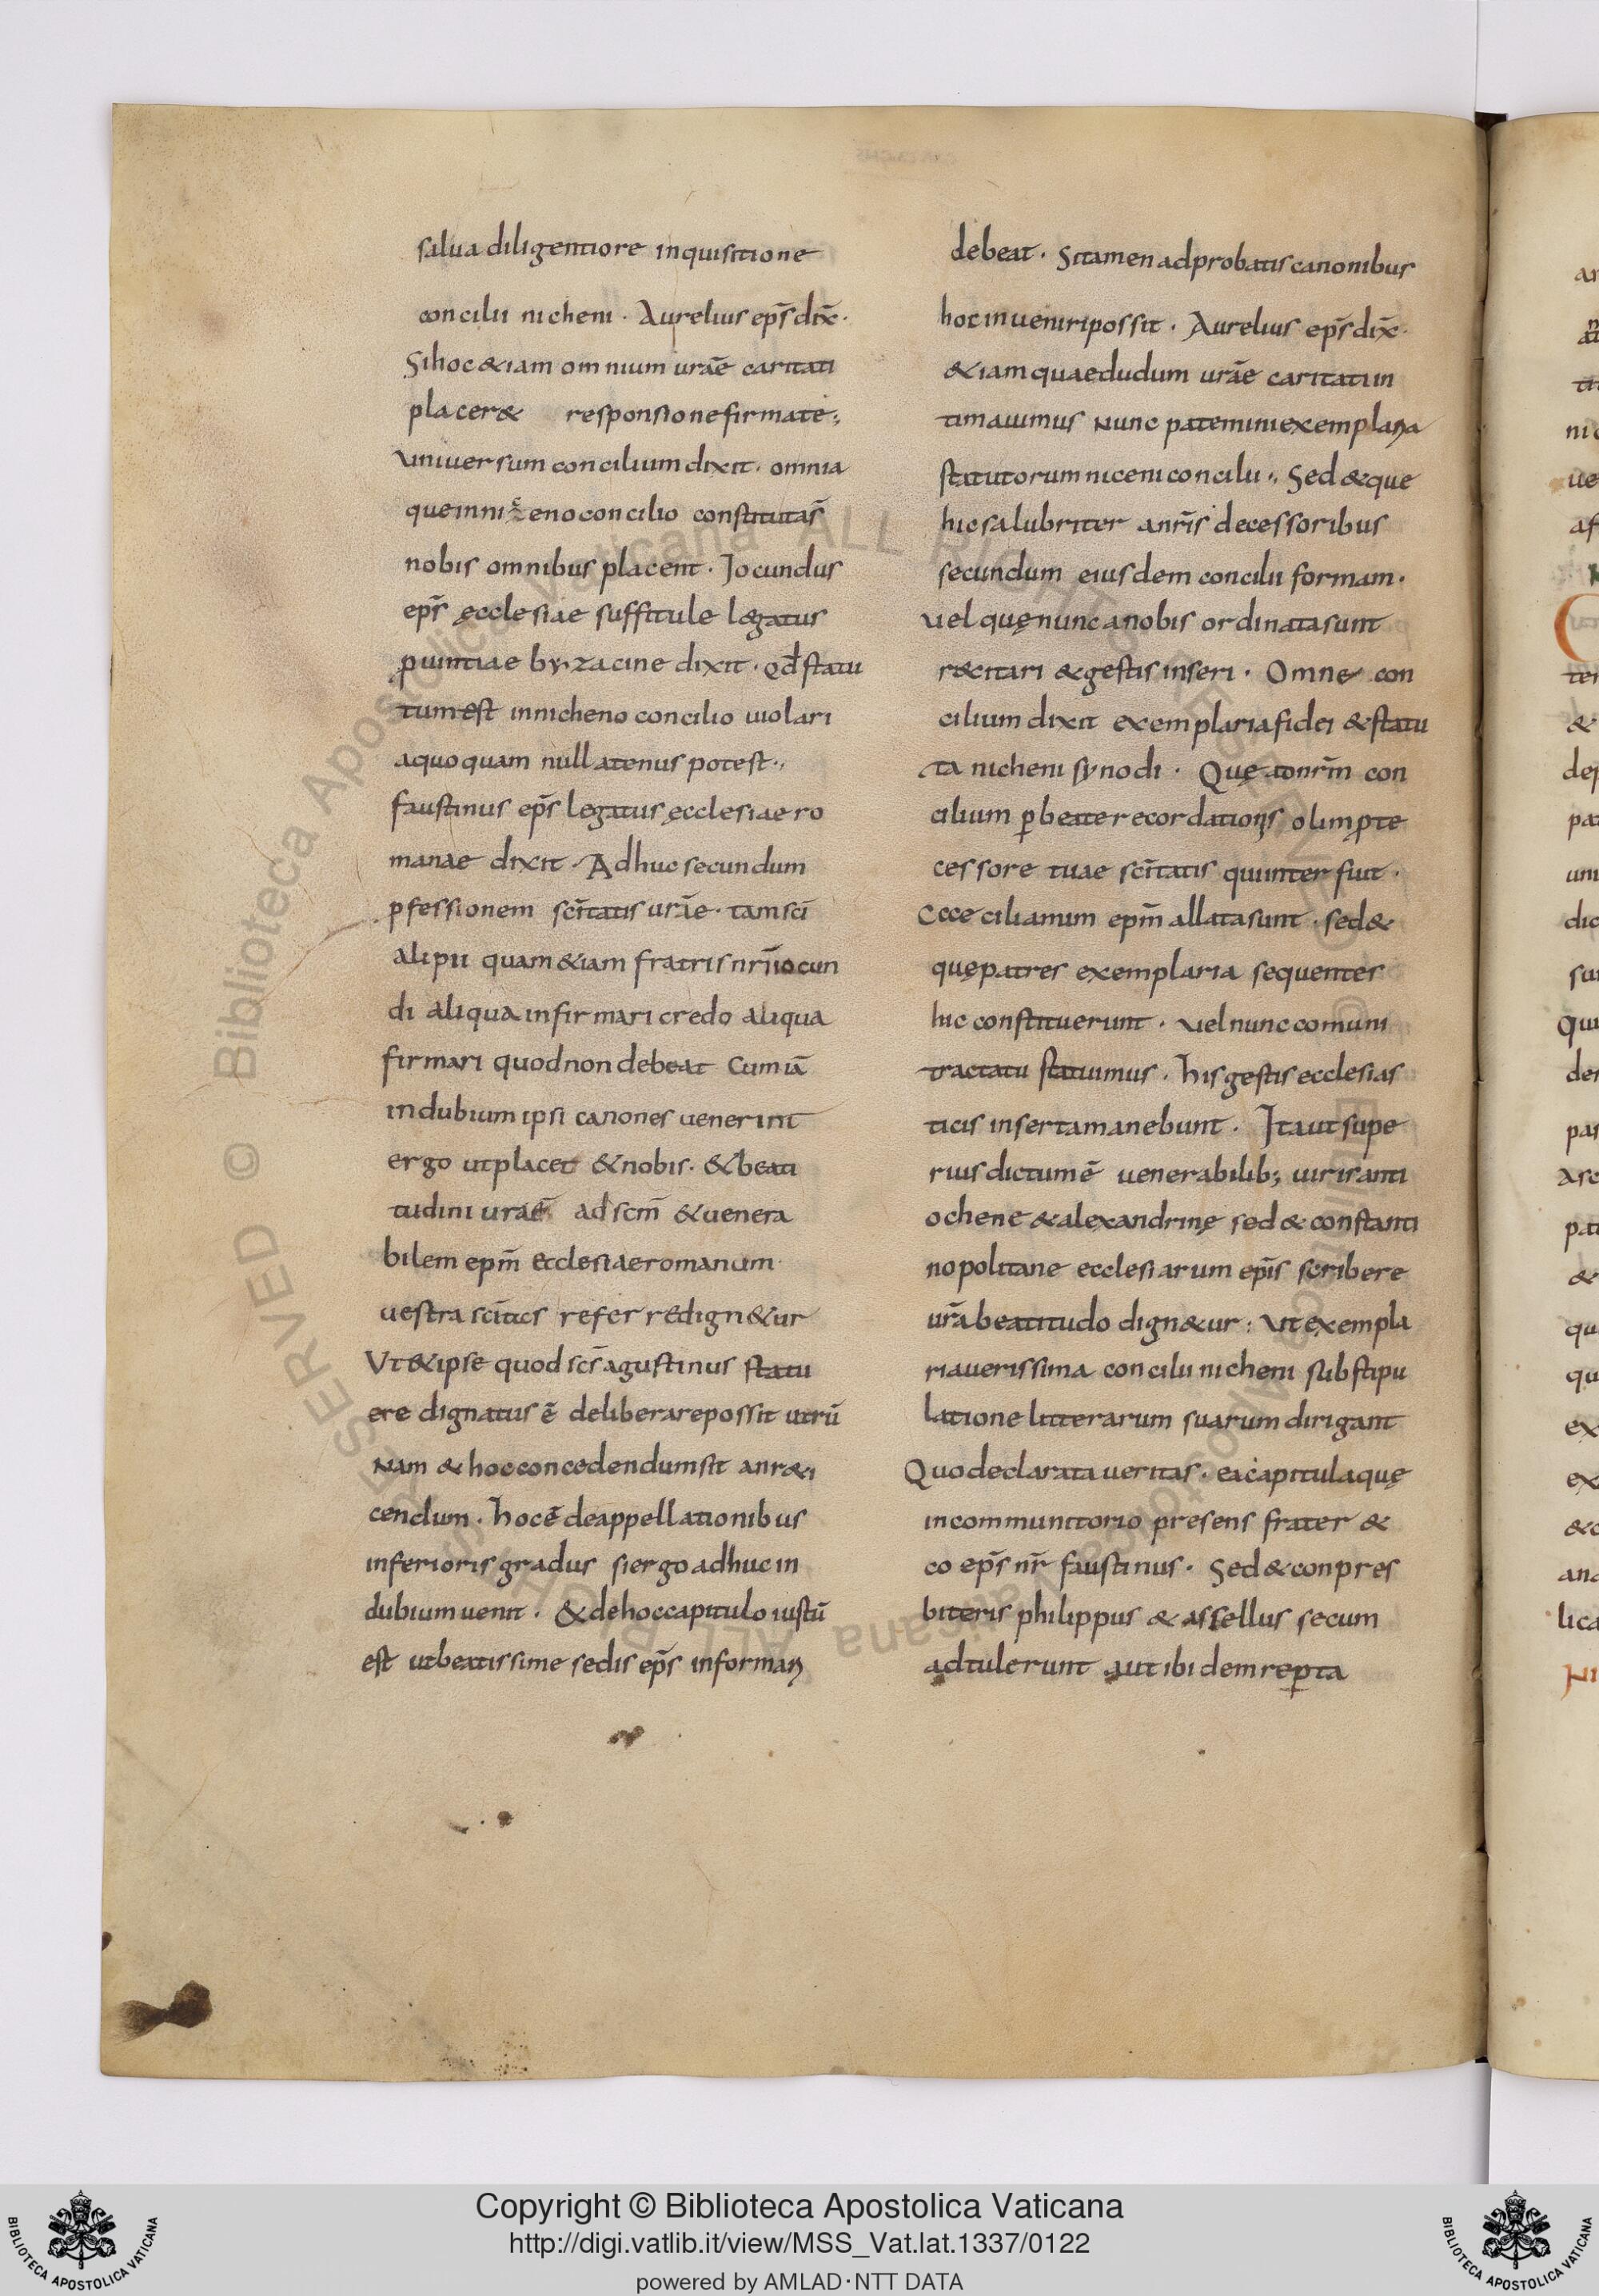 salua diligentiore inquisitione
concilii nicheni · Aurelius ep̄s dix̄ ·
Si hoc &iam omnium urāe caritati
placer& responsione firmate ;
Uniuersum concilium dixit · omnia
que in eno concilio constituta s̄
nobis omnibus placent · Jocundus
ep̄s ęcclesiae suffitule legatus
ꝓuintiae byzacine dixit · qd̄ statu
tum est in nicheno concilio uiolari
a quoquam nullatenus potest ·,
faustinus ep̄s legatus ęcclesiae ro
manae dixit · Adhuc secundum
pfessionem sc̄itatis urāe · tam sc̄i
alipii quam &iam fratris nr̄i iocun
di aliqua infirmari credo aliqua
firmari quod non debeat Cum iā
in dubium ipsi canones uenerint
ergo ut placet & nobis · & beati
tudini urāe ad sc̄m & uenera
bilem ep̄m ecclesiae romanum
uestra refer re dign&ur
Ut & ipse quod sc̄s agustinus statu
ere dignatus ē deliberare possit utrū
Nam & hoc concedendum sit an r&i
cendum · hoc ē de appellationibus
inferioris gradus si ergo adhuc in
dubium uenit · & de hoc capitulo iustū
est ut beatissime sedis ep̄s informari
debeat · Si tamen adprobatis canonibus
hoc inueniri possit · Aurelius ep̄s dix̄ ·
&iam quae dudum urāe caritati in
timauimus Nunc patemini exemplaria
statutorum niceni concilii ·, Sed & que
hic salubriter a nr̄is decessoribus
secundum eiusdem concilii formam ·
uel quę nunc a nobis ordinata sunt
recitari & gestis inseri · Omne con
cilium dixit exemplaria fidei & statu
ta nicheni synodi · Quę ad nr̄m con
cilium ꝑ beate recordationis olim
cessore tuae sc̄itatis qui inter fuit ·
ciliamum ep̄m allata sunt · sed &
quę patres exemplaria sequentes
hic constituerunt · uel nunc comuni
tractatu statuimus · his gestis ecclesias
ticis inserta manebunt · Ita ut supe
rius dictum ē uenerabilib; uiris anti
ochene & alexandrinę sed & constanti
nopolitane ecclesiarum ep̄is scribere
ur̄a beatitudo dign&ur : Ut exempla
ria uerissima concilii nicheni sub stipu
latione litterarum suarum dirigant
Quo declarata ueritas · ea capitula quę
in communitorio presens frater &
co ep̄s nr̄ faustinus · Sed & conpres
biteris philippus & assellus secum
adtulerunt aut ibidem reꝑta
Copyright © Biblioteca Apostolica Vaticana
http://digi.vatlib.it/view/MSS_Vat.lat.1337/0122
powered by AMLAD·NTT DATA